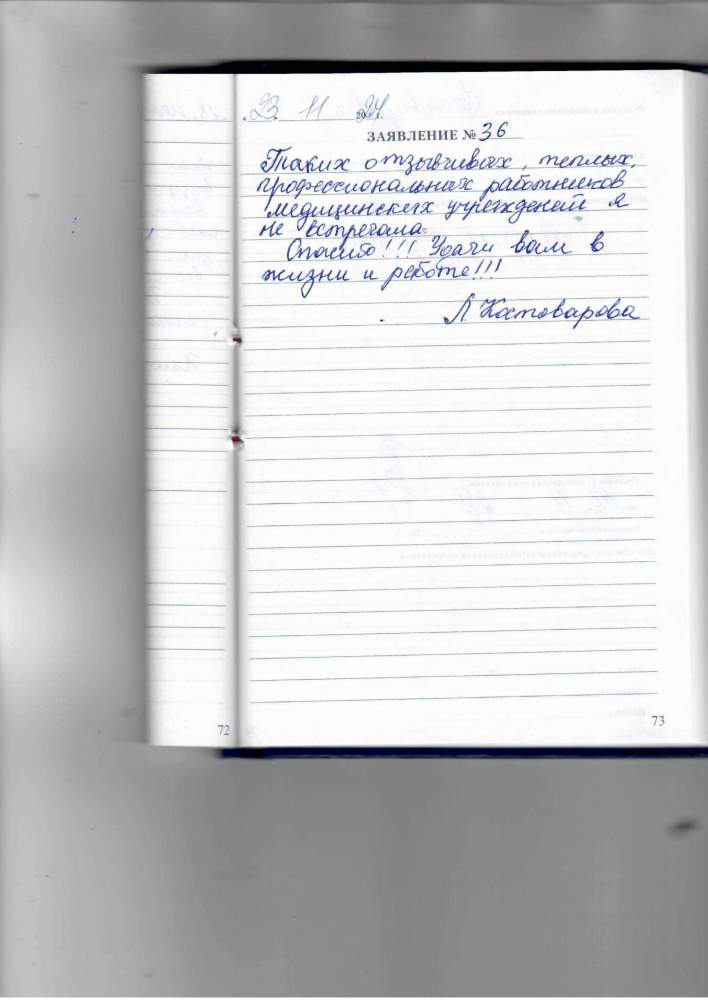 23. 11 2024 г.
ЗАЯВЛЕНИЕ № 36
Таких отзывчивых, теплых,
профессиональных работников
медицинских учреждений я
не встречала.
Спасибо!!! Удачи вам в
жизни и работе!!!
Л Костоварова
72
73